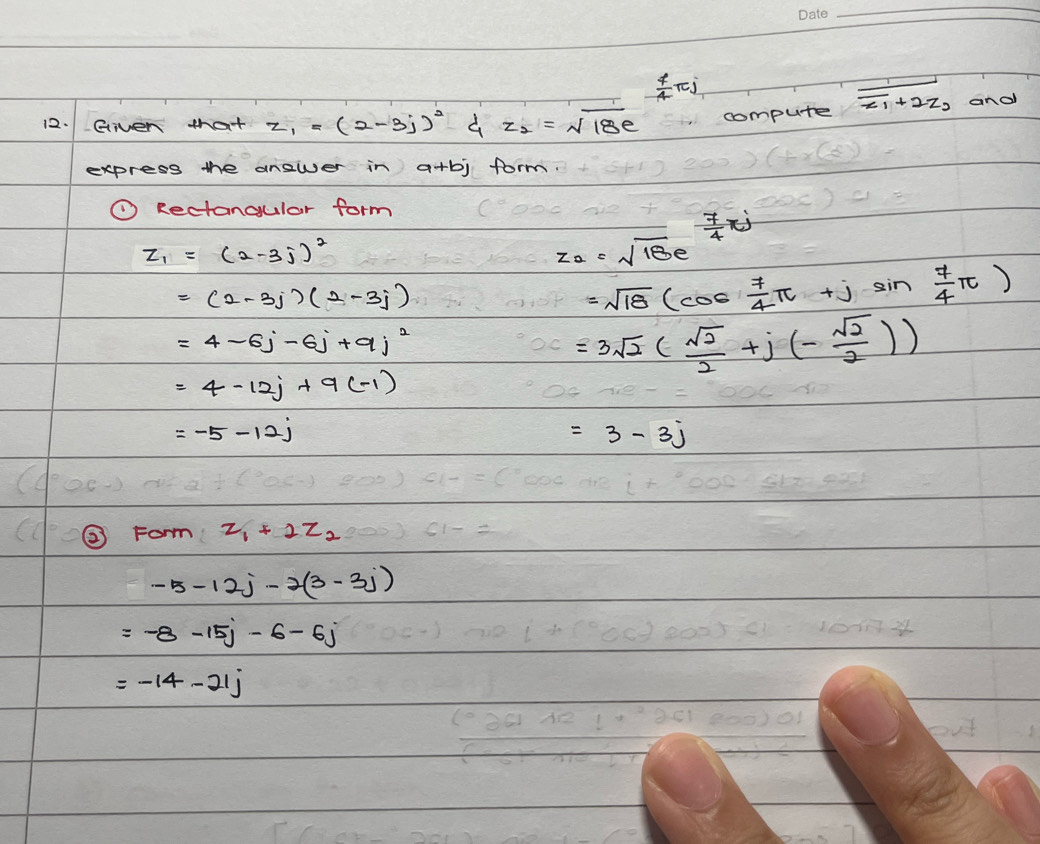 Date
12. Given that z₁ = (2-3j)² & z₂ = √18e^(7/4 πj), compute \overline{\overline{z₁}+2z₂} and
express the answer in a+bj form.
① Rectangular form
z₁ = (2-3j)²
= (2-3j)(2-3j)
= 4-6j-6j+9j²
= 4-12j+9(-1)
= -5-12j
z₂ = √18e^(7/4 πj)
= √18 (cos 7/4 π + j sin 7/4 π)
= 3√2 (√2/2 + j(-√2/2))
= 3 - 3j
② Form z₁ + 2z₂
-5-12j-2(3-3j)
= -8-15j-6-6j
= -14-21j